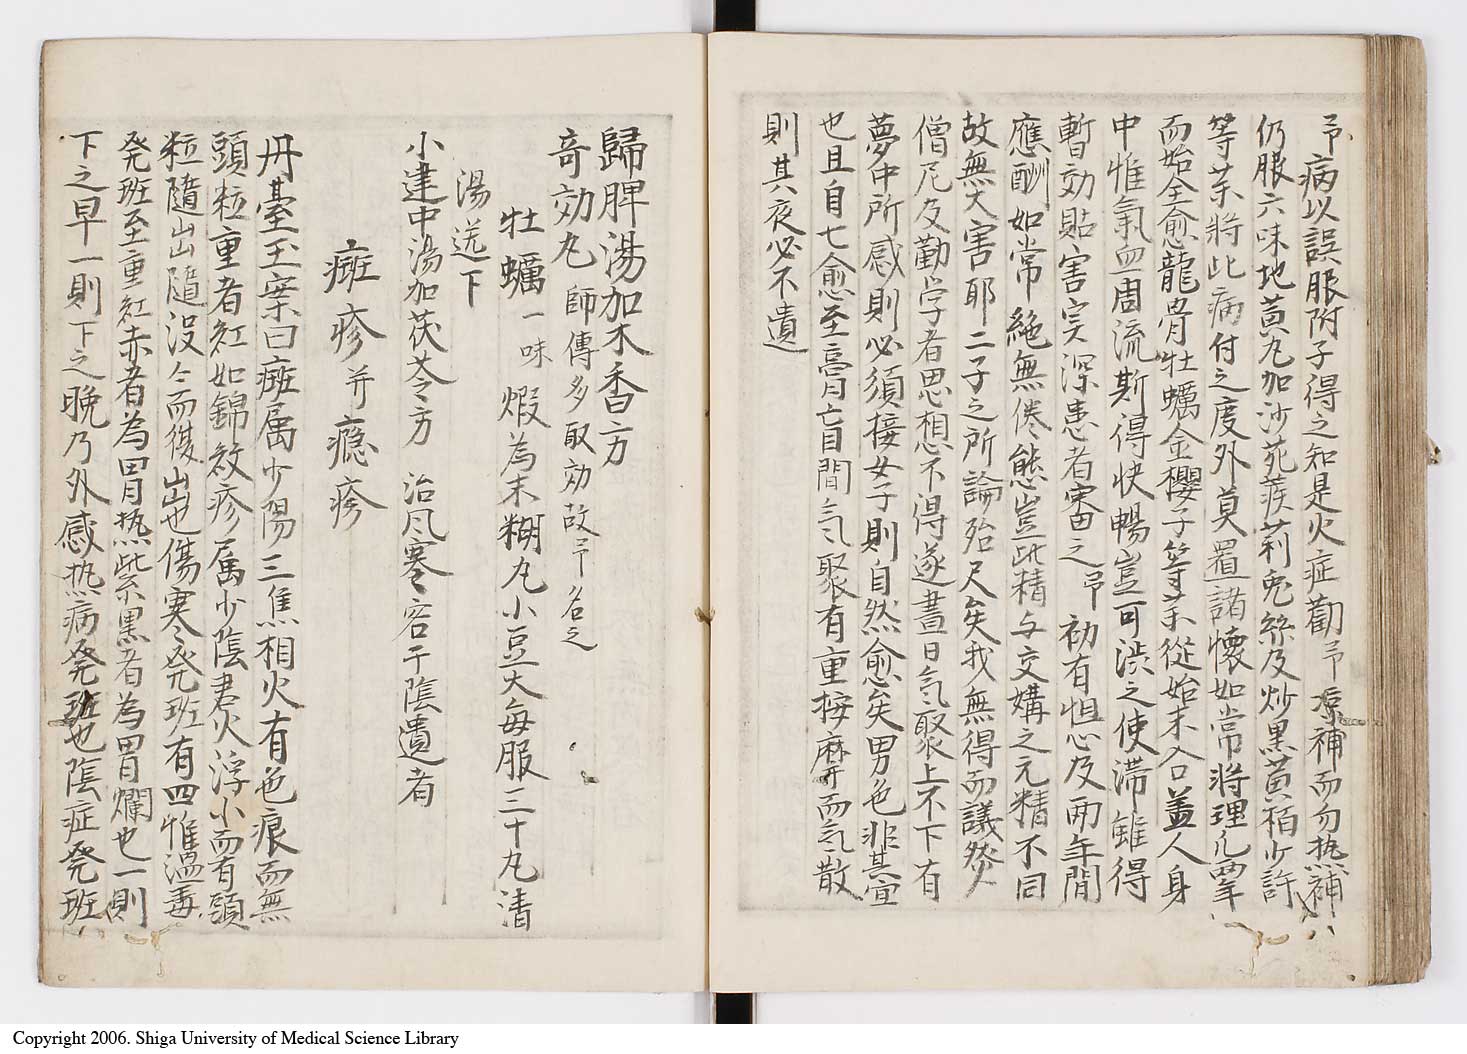 予病以誤服附子得之知是火症勸予凉補而勿热補
仍服六味地黄丸加沙苑蒺莉兎絲及炒黒黄栢少許
等茶將此病付之度外莫罣諸懷如常將理凡两年
而始全愈龍骨牡蠣金櫻子等茶從始未入口盖人身
中惟氣血周流斯得快暢豈可渋之使滞雖得
暫効貼害実深患者審之予初有怛心及两年間
應酬如常絶無倦態豈此精与交媾之元精不同
故無大害耶二子之所論殆尺矣我無得而議然
僧尼及勤学者思想不得遂晝日氣聚上不下有
夢中所感則必須接女子則自然愈矣男色非其宜
也且自七愈至膏盲間气聚有重按摩而气散
則其夜必不遺
歸脾湯加木香方
奇効丸 師傳多取効故予名之
牡蠣一味 煅為末糊丸小豆大毎服三十丸清
湯送下
小建中湯加茯苓方 治风寒客干陰遺者
癍疹并癮疹
丹臺玉案曰癍属少陽三焦相火有色痕而無
頭粒重者紅如錦紋疹属少陰君火浮小而有頭
粒隨出隨没今而復出也傷寒発班有四惟温毒
発班至重紅赤者為胃热紫黒者為胃爛也一則
下之早一則下之晩乃外感热病発班也陰症発班
Copyright 2006. Shiga University of Medical Science Library